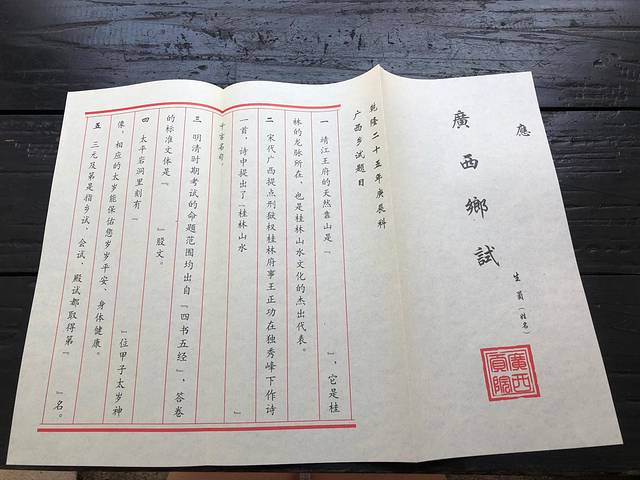 應
廣西鄉試
生員（姓名）
廣西貢院
乾隆二十五年庚辰科
广西乡试题目
一 靖江王府的天然靠山是『 』，它是桂
林的龙脉所在，也是桂林山水文化的杰出代表。
二 宋代广西提点刑狱权桂林府事王正功在独秀峰下作诗
一首，诗中提出了“桂林山水 』
千古名句。
三 明清时期考试的命题范围均出自『四书五经』，答卷
的标准文体是『 』股文。
四 太平岩洞里刻有『 』位甲子太岁神
像，相应的太岁能保佑您岁岁平安、身体健康。
五 三元及第是指乡试、会试、殿试都取得第『 』名。